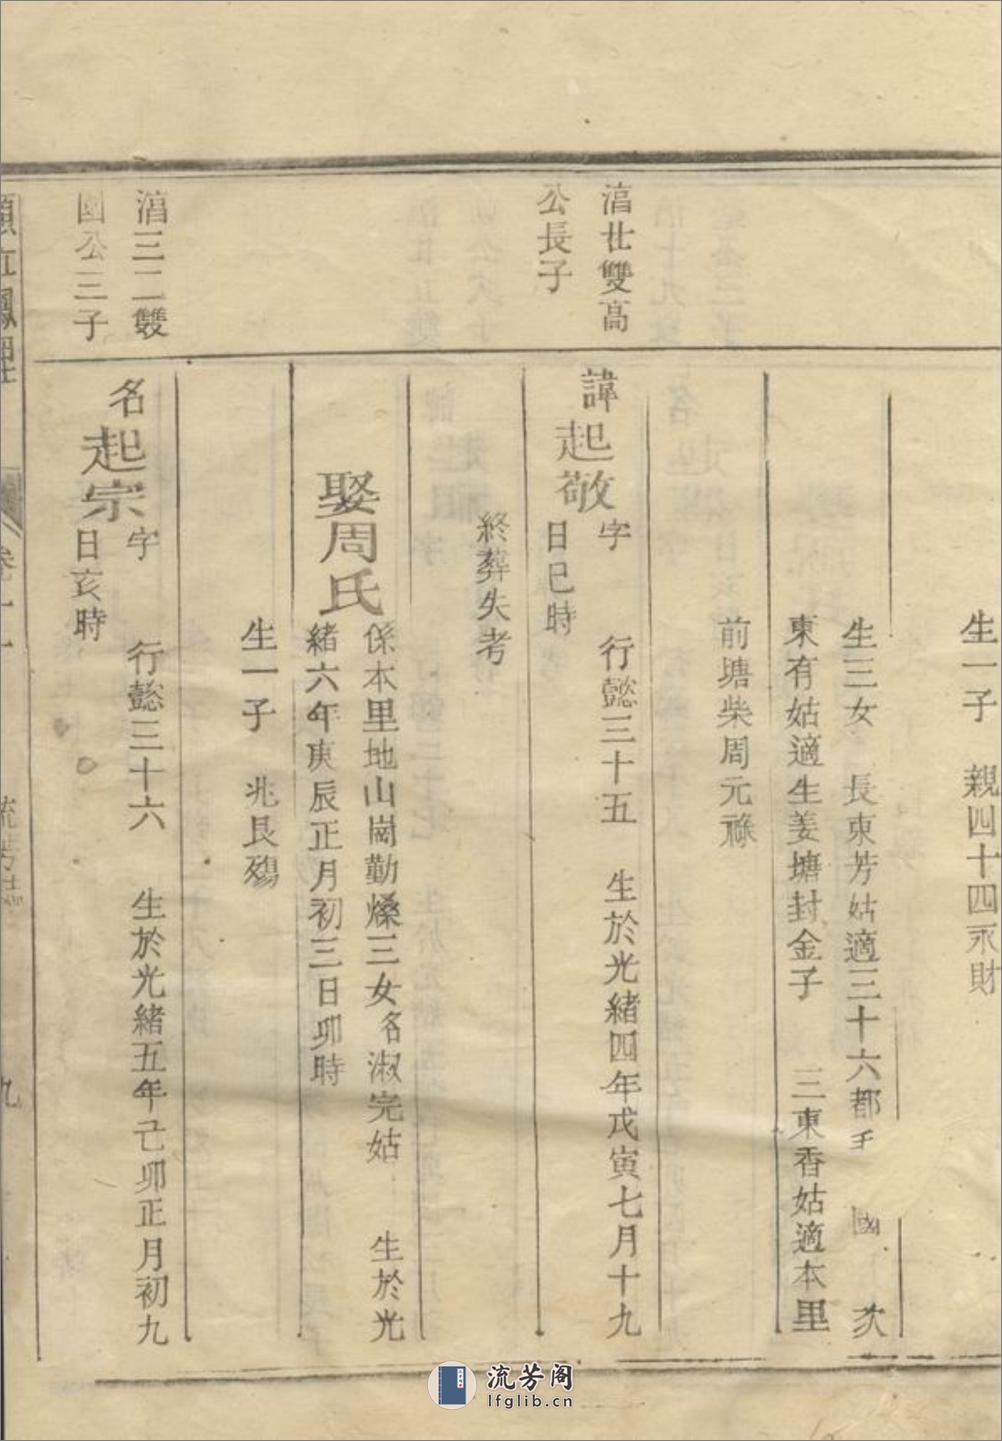 生一子　親四十四永財
生三女　長東芳姑適三十六都　國　次
東有姑適生姜塘封金子　三東香姑適本里
前塘柴周元祿
滀廿雙高
公長子
諱起敬　字　行懿三十五　生於光緒四年戊寅七月十九
日巳時
終葬失考
娶周氏　係本里地山崗勤燥三女名淑完姑　生於光
緒六年庚辰正月初三日卯時
生一子　兆良殤
滀三二雙
國公三子
名起宗　字　行懿三十六　生於光緒五年己卯正月初九
日亥時
卷十一
九
流芳阁
lfglib.cn